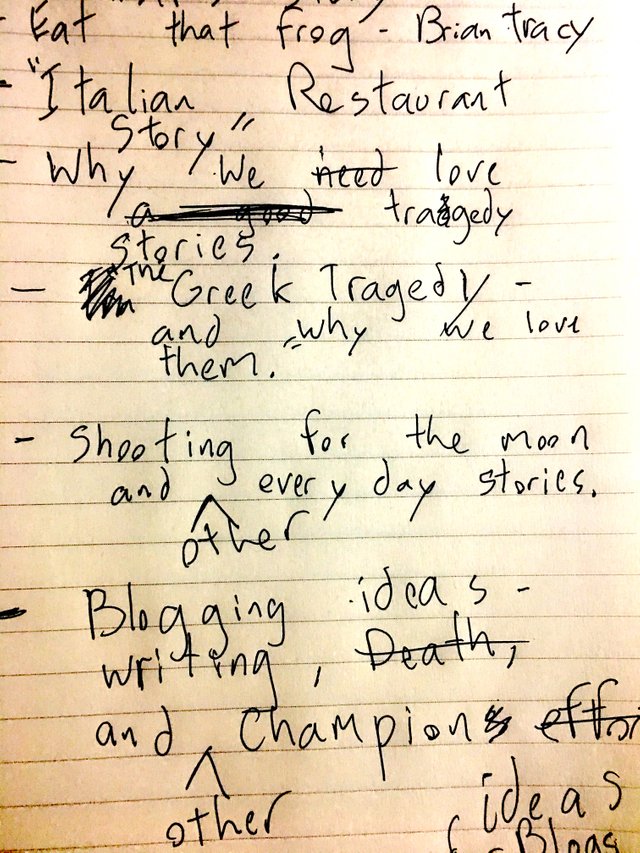 Eat that frog - Brian tracy
- "Italian Restaurant
Story"
- Why We need love
a good tragedy
stories.
- The Greek Tragedy -
and "why we love
them."
- Shooting for the moon
and every day stories.
other
- Blogging ideas -
writing, Death,
and Champion
other
ideas
Blogs